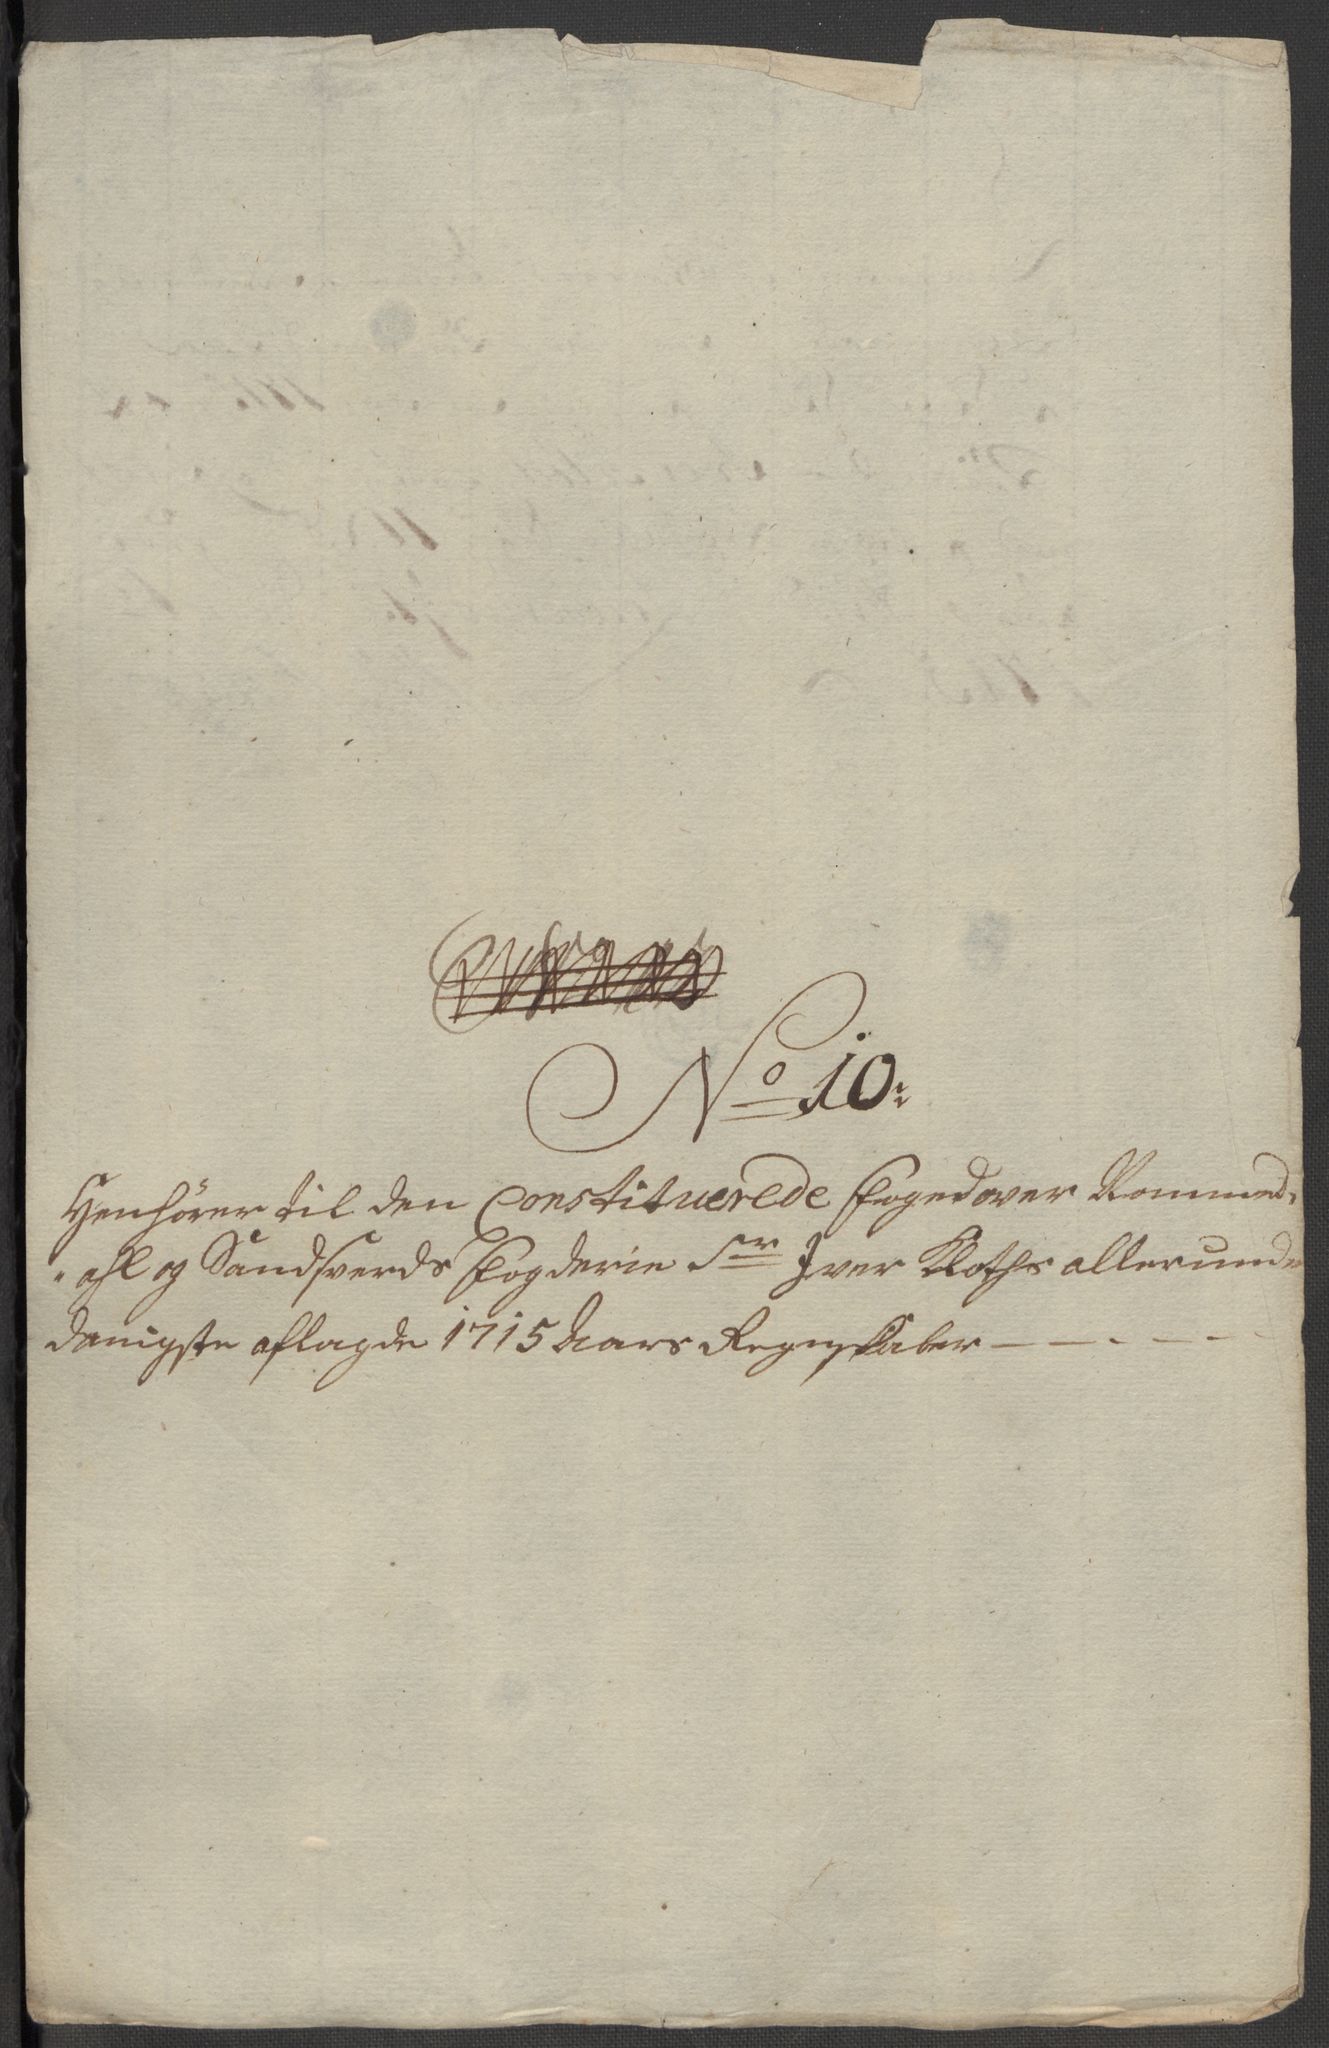 No 10:
Henhörer til den Constituerede Foged over Nommed-
ahl og Sandsverds Fogderie Sr Jver Kloths allerunder
danigste aflagde 1715 Aars Regnskaber